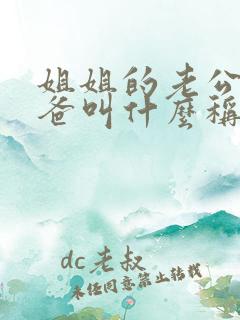 姐姐的老公
爸叫什麼稱
dc老叔
未经同意禁止转载